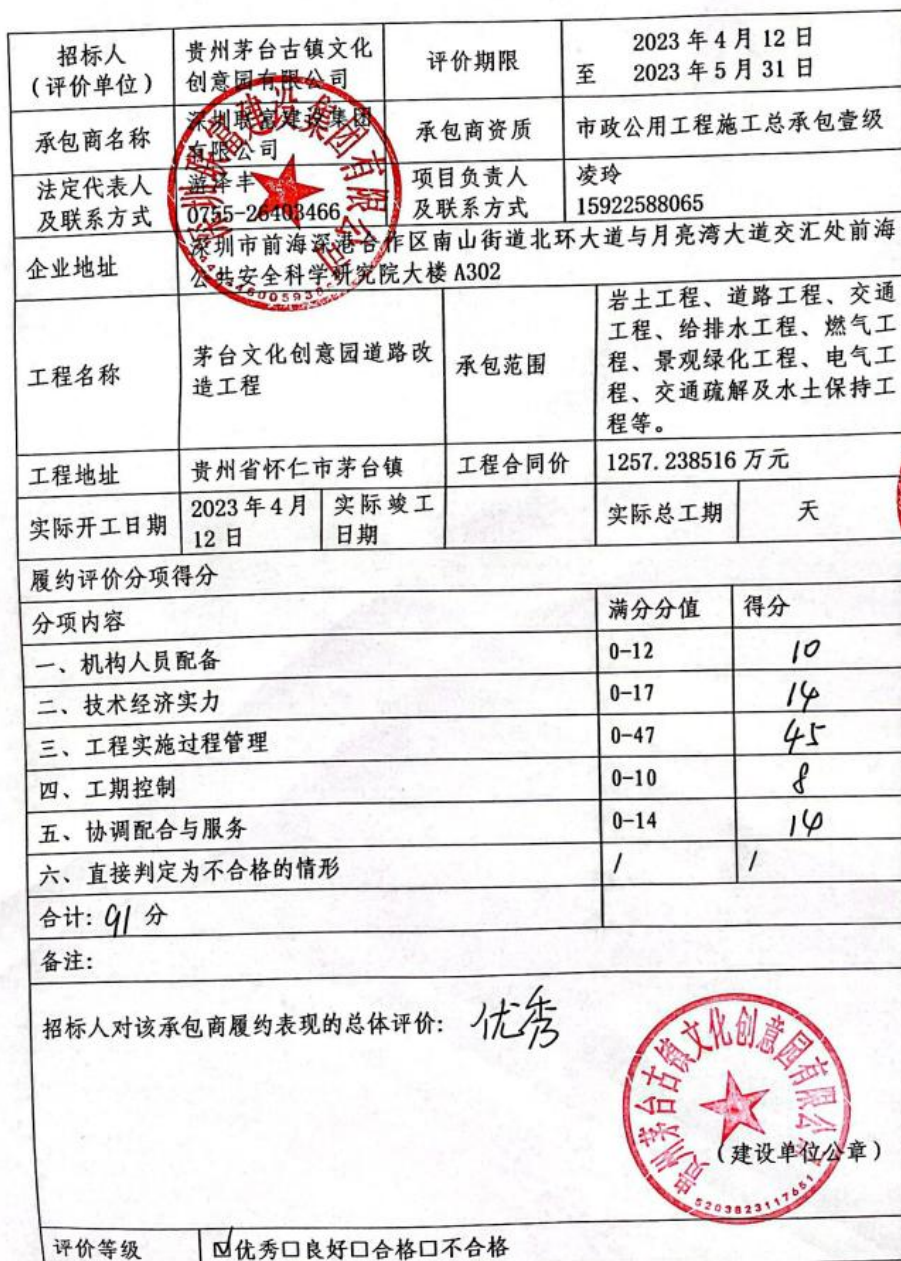 招标人
（评价单位）
贵州茅台古镇文化
创意园有限公司
评价期限
2023年4月12日
至 2023年5月31日
承包商名称
深圳联富建设集团
有限公司
承包商资质
市政公用工程施工总承包壹级
法定代表人
及联系方式
游泽丰
0755-26403466
项目负责人
及联系方式
凌玲
15922588065
企业地址
深圳市前海深港合作区南山街道北环大道与月亮湾大道交汇处前海
公共安全科学研究院大楼A302
工程名称
茅台文化创意园道路改
造工程
承包范围
岩土工程、道路工程、交通
工程、给排水工程、燃气工
程、景观绿化工程、电气工
程、交通疏解及水土保持工
程等。
工程地址
贵州省怀仁市茅台镇
工程合同价
1257.238516万元
实际开工日期
2023年4月
12日
实际竣工
日期
实际总工期
天
履约评价分项得分
分项内容 满分分值 得分
一、机构人员配备 0-12 10
二、技术经济实力 0-17 14
三、工程实施过程管理 0-47 45
四、工期控制 0-10 8
五、协调配合与服务 0-14 14
六、直接判定为不合格的情形 / /
合计：91分
备注：
招标人对该承包商履约表现的总体评价：优秀
（建设单位公章）
评价等级 ☑优秀口良好口合格口不合格
深圳联富建设集团有限公司
贵州茅台古镇文化创意园有限公司
5203823117651